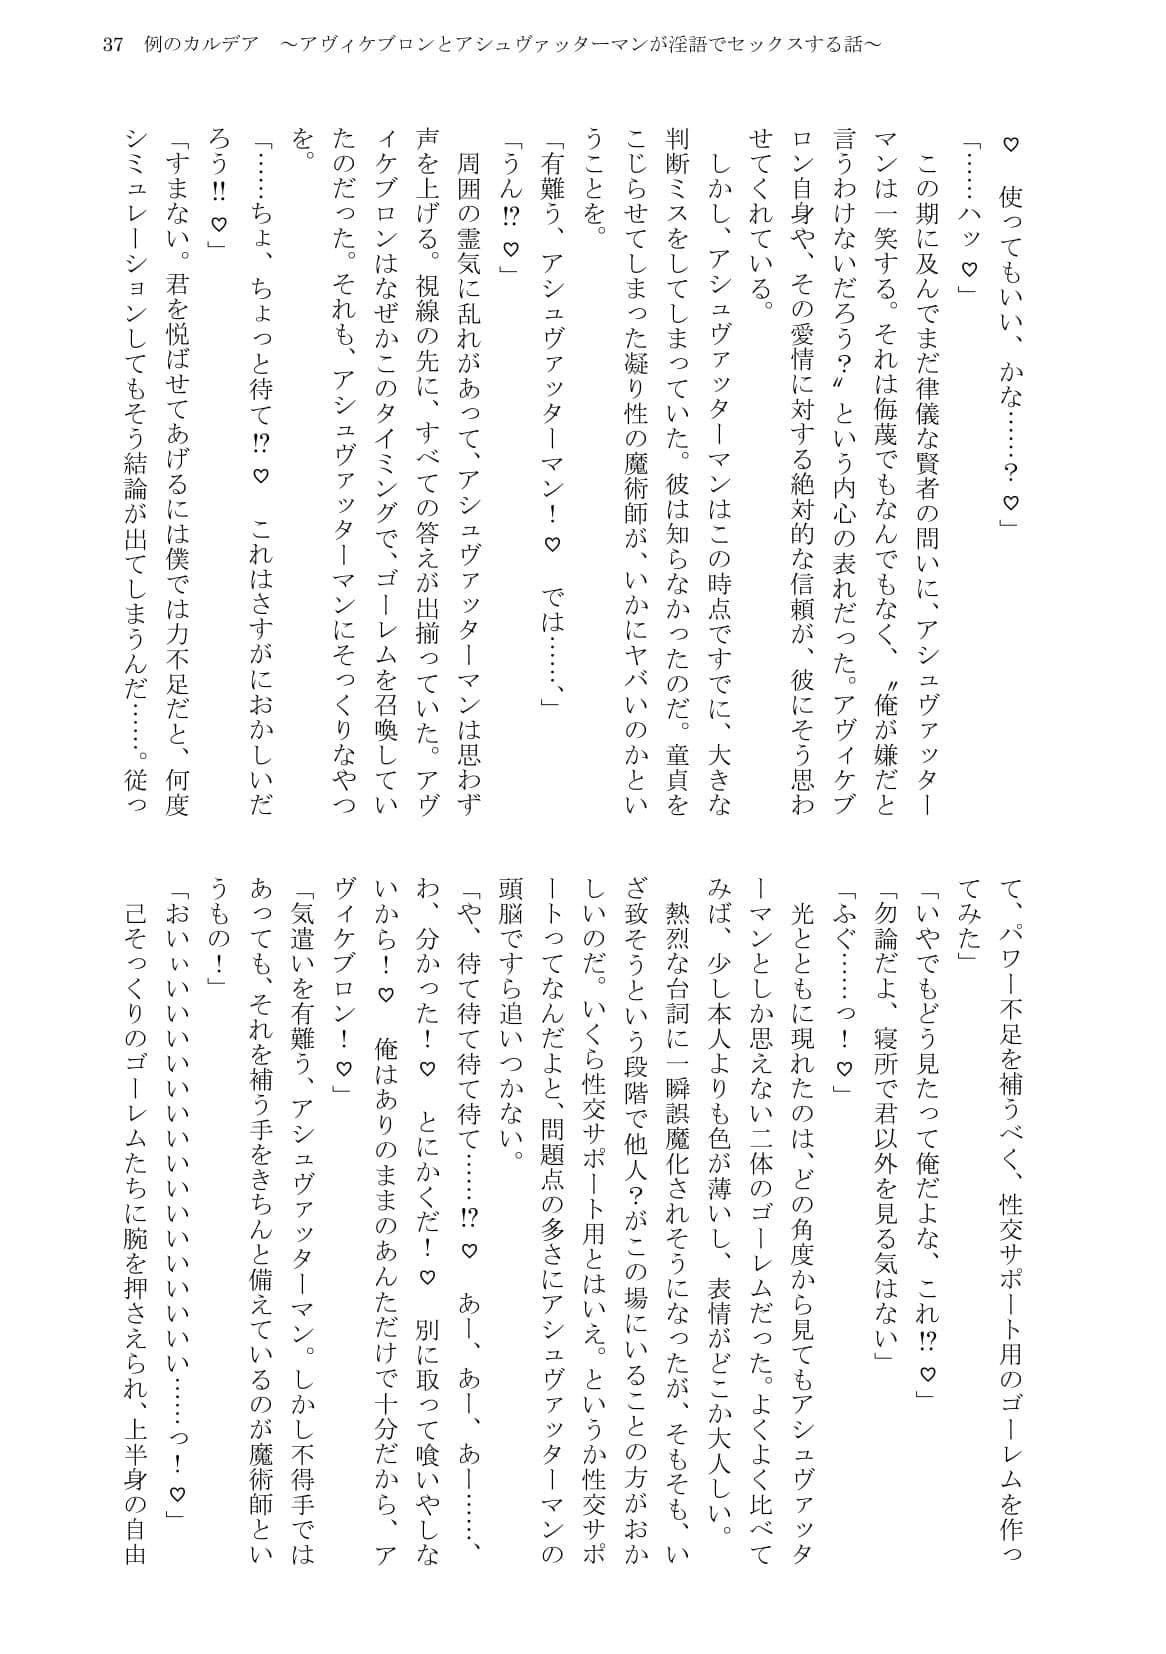 37 例のカルデア　～アヴィケブロンとアシュヴァッターマンが淫語でセックスする話～
♡　使ってもいい、かな……？♡」
「……ハッ♡」
　この期に及んでまだ律儀な賢者の問いに、アシュヴァッター
マンは一笑する。それは侮蔑でもなんでもなく、〝俺が嫌だと
言うわけないだろう？〟という内心の表れだった。アヴィケブ
ロン自身や、その愛情に対する絶対的な信頼が、彼にそう思わ
せてくれている。
　しかし、アシュヴァッターマンはこの時点ですでに、大きな
判断ミスをしてしまっていた。彼は知らなかったのだ。童貞を
こじらせてしまった凝り性の魔術師が、いかにヤバいのかとい
うことを。
「有難う、アシュヴァッターマン！♡　では……、」
「うん!?♡」
　周囲の霊気に乱れがあって、アシュヴァッターマンは思わず
声を上げる。視線の先に、すべての答えが出揃っていた。アヴ
ィケブロンはなぜかこのタイミングで、ゴーレムを召喚してい
たのだった。それも、アシュヴァッターマンにそっくりなやつ
を。
「……ちょ、ちょっと待て!?♡　これはさすがにおかしいだ
ろう!!♡」
「すまない。君を悦ばせてあげるには僕では力不足だと、何度
シミュレーションしてもそう結論が出てしまうんだ……。従っ
て、パワー不足を補うべく、性交サポート用のゴーレムを作っ
てみた」
「いやでもどう見たって俺だよな、これ!?♡」
「勿論だよ、寝所で君以外を見る気はない」
「ふぐ……っ！♡」
　光とともに現れたのは、どの角度から見てもアシュヴァッタ
ーマンとしか思えない二体のゴーレムだった。よくよく比べて
みば、少し本人よりも色が薄いし、表情がどこか大人しい。
　熱烈な台詞に一瞬誤魔化されそうになったが、そもそも、い
ざ致そうという段階で他人？がこの場にいることの方がおか
しいのだ。いくら性交サポート用とはいえ。というか性交サポ
ートってなんだよと、問題点の多さにアシュヴァッターマンの
頭脳ですら追いつかない。
「や、待て待て待て待て……!?♡　あー、あー、あー……、
わ、分かった！♡　とにかくだ！♡　別に取って喰いやしな
いから！♡　俺はありのままのあんただけで十分だから、ア
ヴィケブロン！♡」
「気遣いを有難う、アシュヴァッターマン。しかし不得手では
あっても、それを補う手をきちんと備えているのが魔術師とい
うもの！」
「おいぃいいいいいいいいいいいいいいいい……っ！♡」
　己そっくりのゴーレムたちに腕を押さえられ、上半身の自由